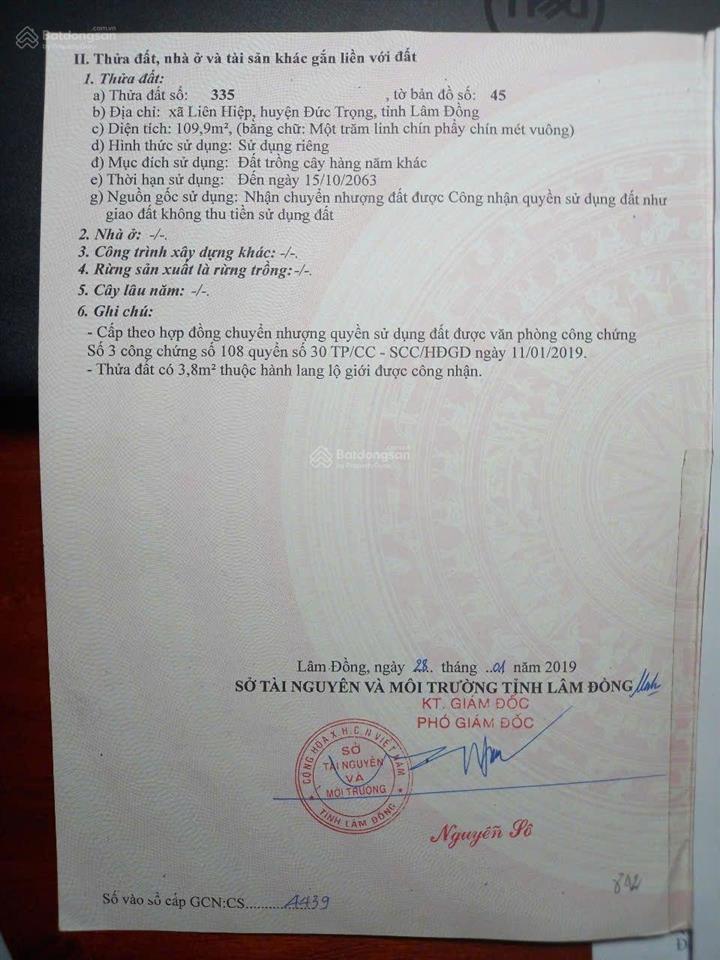 Batdongsan.com.vn
by PropertyGuru
II. Thửa đất, nhà ở và tài sản khác gắn liền với đất
1. Thửa đất:
a) Thửa đất số: 335 , tờ bản đồ số: 45
b) Địa chỉ: xã Liên Hiệp, huyện Đức Trọng, tỉnh Lâm Đồng
c) Diện tích: 109,9m², (bằng chữ: Một trăm linh chín phẩy chín mét vuông)
d) Hình thức sử dụng: Sử dụng riêng
đ) Mục đích sử dụng: Đất trồng cây hàng năm khác
e) Thời hạn sử dụng: Đến ngày 15/10/2063
g) Nguồn gốc sử dụng: Nhận chuyển nhượng đất được Công nhận quyền sử dụng đất như
giao đất không thu tiền sử dụng đất
2. Nhà ở: -/-.
3. Công trình xây dựng khác: -/-.
4. Rừng sản xuất là rừng trồng:-/-.
5. Cây lâu năm: -/-.
6. Ghi chú:
- Cấp theo hợp đồng chuyển nhượng quyền sử dụng đất được văn phòng công chứng
Số 3 công chứng số 108 quyển số 30 TP/CC - SCC/HĐGD ngày 11/01/2019.
- Thửa đất có 3,8m² thuộc hành lang lộ giới được công nhận.
Batdongsan
by PropertyGuru
Lâm Đồng, ngày 28.. tháng ..01 năm 2019
SỞ TÀI NGUYÊN VÀ MÔI TRƯỜNG TỈNH LÂM ĐỒNG
KT. GIÁM ĐỐC
PHÓ GIÁM ĐỐC
CỘNG HÒA X.H.C.N VIỆT NAM
SỞ
TÀI NGUYÊN
VÀ
MÔI TRƯỜNG
TỈNH LÂM ĐỒNG
Nguyễn Sô
Số vào sổ cấp GCN:CS..........4439